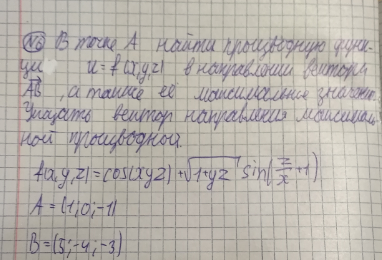 №6 В точке А найти производную функ-
ции u = f(x,y,z) в направлении вектора
AB, а также её максимальное значение.
Указать вектор направления максималь-
ной производной.
f(x,y,z)=cos(xyz)+√1+yz sin(z/x+1)
A = (1;0;-1)
B = (5;-4;-3)